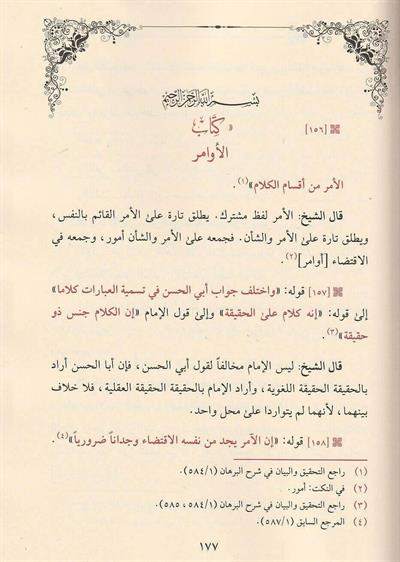 بسم الله الرحمن الرحيم
[١٥٦] «كتاب
الأوامر
الأمر من أقسام الكلام»(١).
قال الشيخ: الأمر لفظ مشترك. يطلق تارة على الأمر القائم بالنفس،
ويطلق تارة على الأمر والشأن. فجمعه على الأمر والشأن أمور، وجمعه في
الاقتضاء [أوامر](٢).
[١٥٧] قوله: «واختلف جواب أبي الحسن في تسمية العبارات كلاما»
إلى قوله: «إنه كلام على الحقيقة» وإلى قول الإمام «إن الكلام جنس ذو
حقيقة»(٣).
قال الشيخ: ليس الإمام مخالفاً لقول أبي الحسن، فإن أبا الحسن أراد
بالحقيقة الحقيقة اللغوية، وأراد الإمام بالحقيقة الحقيقة العقلية، فلا خلاف
بينهما، لأنهما لم يتواردا على محل واحد.
[١٥٨] قوله: «إن الآمر يجد من نفسه الاقتضاء وجداناً ضرورياً»(٤).
(١) راجع التحقيق والبيان في شرح البرهان (٥٨٤/١).
(٢) في النكت: أمور.
(٣) راجع التحقيق والبيان في شرح البرهان (٥٨٤/١، ٥٨٥).
(٤) المرجع السابق (٥٨٧/١).
١٧٧